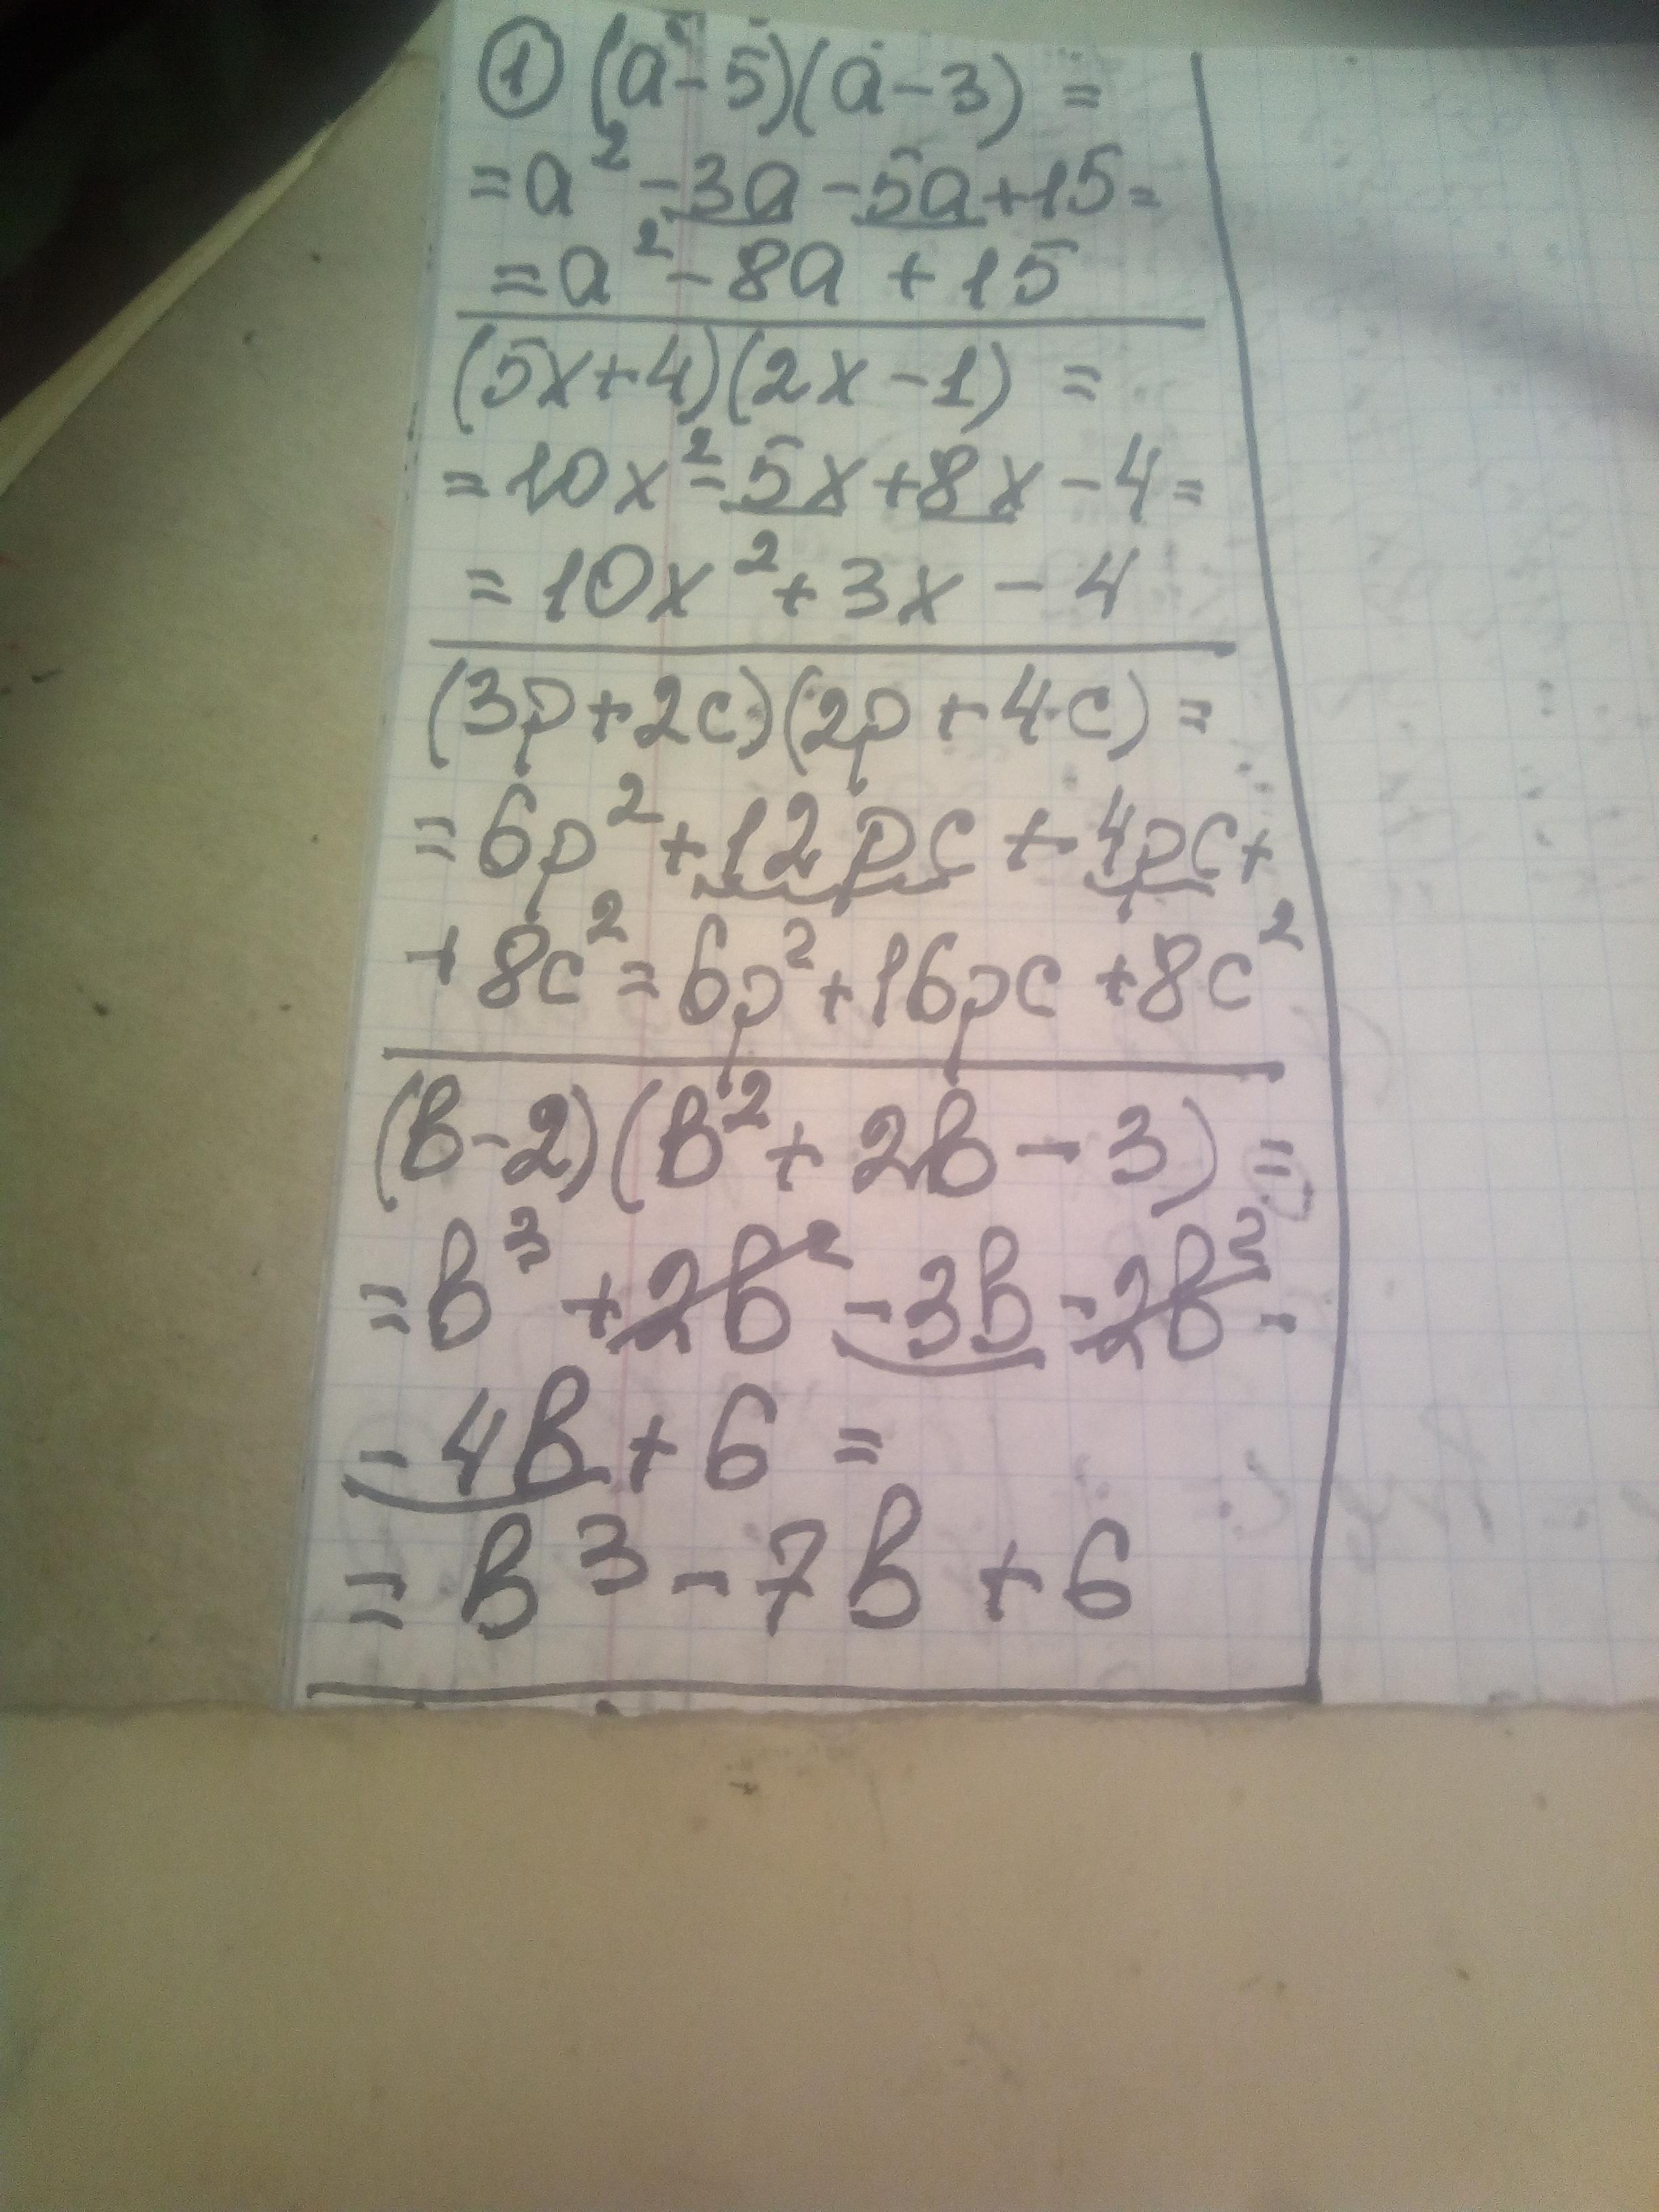 ① (a-5)(a-3) =
= a² - 3a - 5a + 15 =
= a² - 8a + 15
(5x+4)(2x-1) =
= 10x² - 5x + 8x - 4 =
= 10x² + 3x - 4
(3p+2c)(2p+4c) =
= 6p² + 12pc + 4pc +
+ 8c² = 6p² + 16pc + 8c²
(в-2)(в² + 2в - 3) =
= в³ + 2в² - 3в - 2в² -
- 4в + 6 =
= в³ - 7в + 6